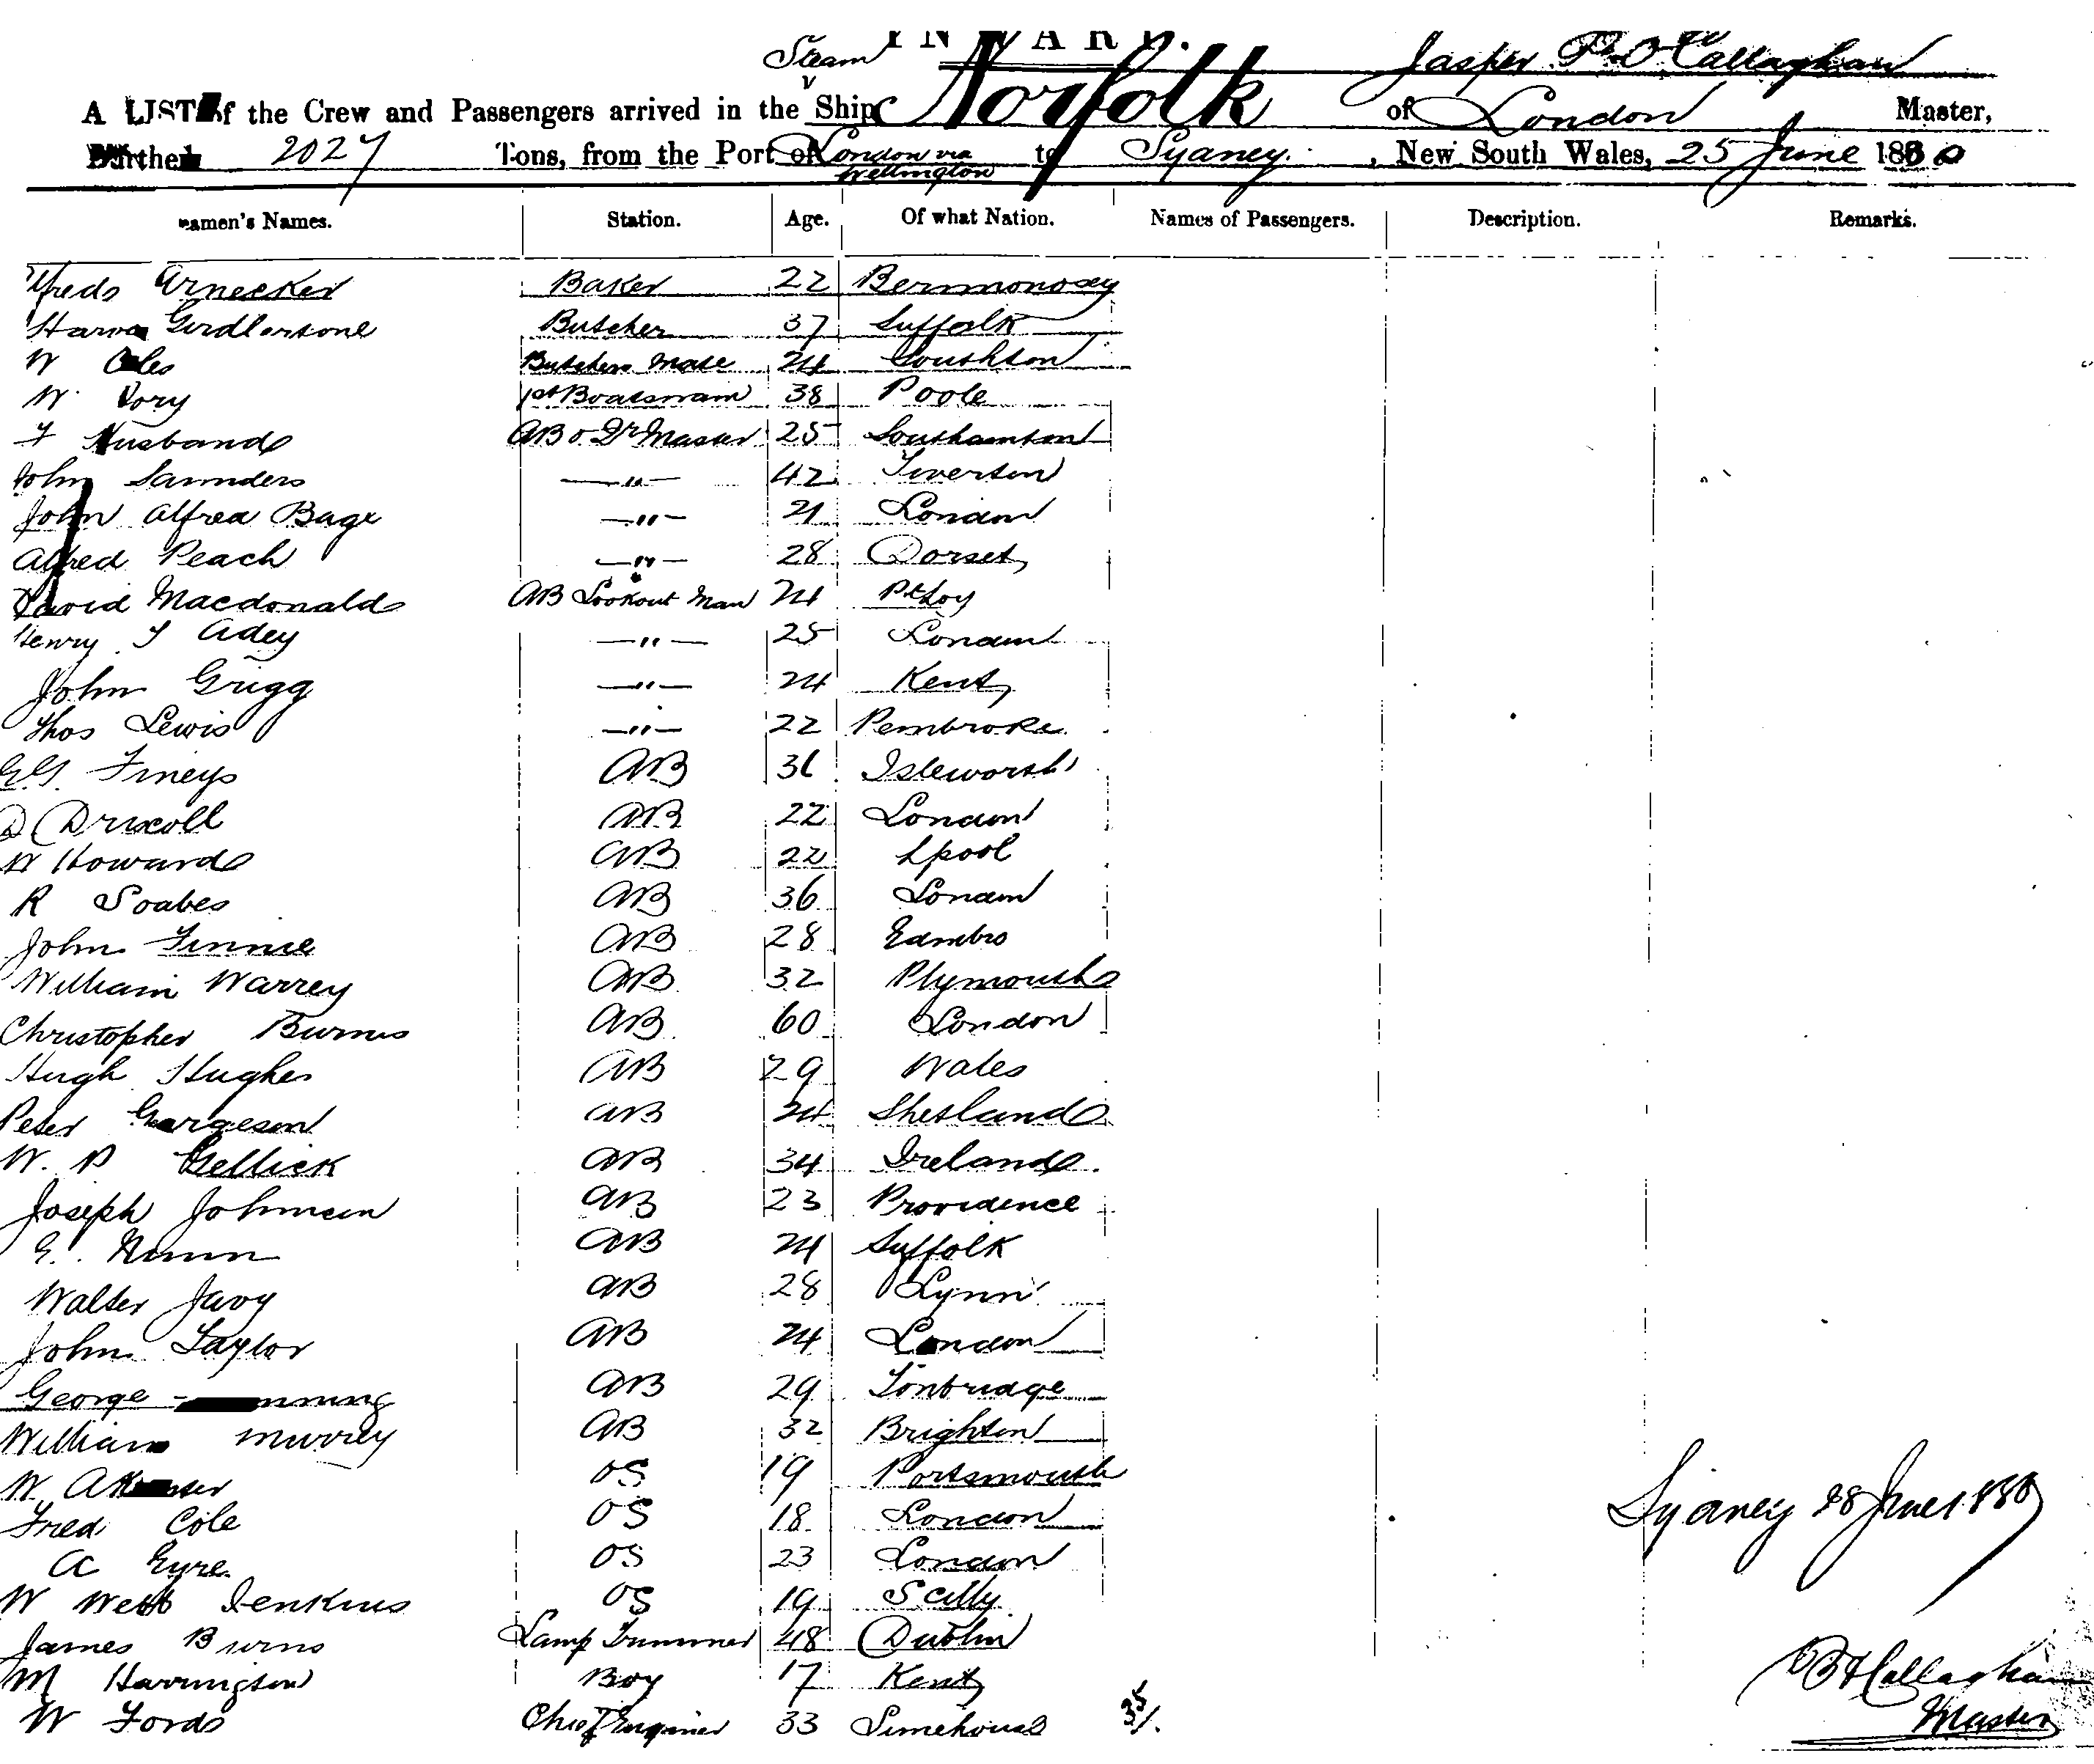 INWARD.
Steam Jasper P. O'Callaghan
A LIST of the Crew and Passengers arrived in the Ship Norfolk of London Master,
Burthen 2027 Tons, from the Port of London via Wellington to Sydney, New South Wales, 25 June 1880
eamen's Names. Station. Age. Of what Nation. Names of Passengers. Description. Remarks.
Arnecker Baker 22 Bermondsey
Girdlestone Butcher 37 Suffolk
W Butchers Mate 24
W. 1st Boatswain 38 Poole
F Husband AB & Qr Master 25 Southamton
John Saunders —"— 42 Tiverton
John Alfred Bage —"— 21 London
Alfred Peach —"— 28 Dorset
David Macdonald AB Lookout Man 24
Henry J Adey —"— 25 London
John Grigg —"— 24 Kent
Thos Lewis —"— 22 Pembroke
Fineys AB Isleworth
D Driscoll AB 22 London
W Howard AB 22 Lpool
R Soabes AB 36 London
John Finnie AB 28 Edinbro
William Warrey AB 32 Plymouth
Christopher Burns AB 60 London
Hugh Hughes AB 29 Wales
Peter AB 24 Shetland
W. P Gellick AB 34 Ireland
Joseph Johnson AB 23 Providence
E. Nunn AB 24 Suffolk
Walter Javy AB 28 Lynn
John Taylor AB 24 London
George AB 29 Tonbridge
William Murrey AB 32 Brighton
W. OS 19 Portsmouth
Fred Cole OS 18 London
A Eyre OS 23 London
W Webb Jenkins OS 19 Scilly
James Burns Lamp Trimmer 48 Dublin
M Harrington Boy 17 Kent
W Ford Chief Enginer 33 Limehouse 35/.
Sydney 28 June 1880
Callaghan
Master